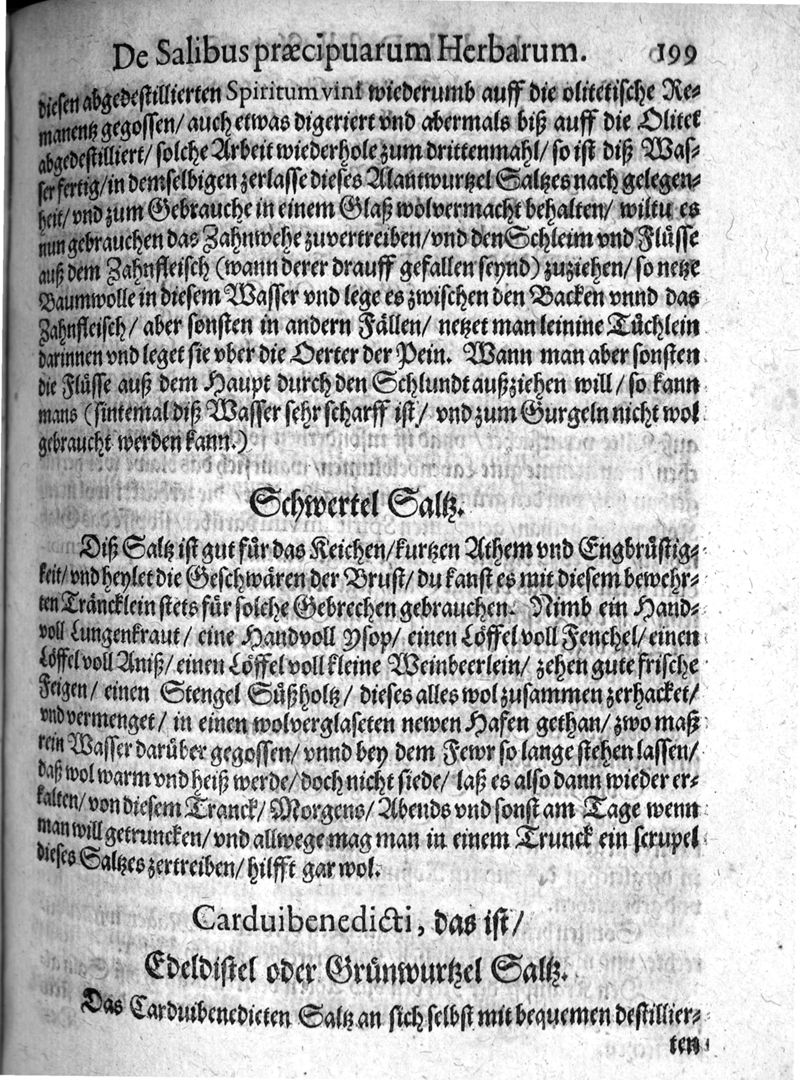 De Salibus præcipuarum Herbarum. 199
diesen abgedestillierten Spiritum vini wiederumb auff die olitetische Re-
manentz gegossen/ auch etwas digeriert vnd abermals biß auff die Olitet
abgedestilliert/ solche Arbeit wiederhole zum drittenmahl/ so ist diß Was-
ser fertig/ in demselbigen zerlasse dieses Alantwurtzel Saltzes nach gelegen-
heit/ vnd zum Gebrauche in einem Glaß wolvermacht behalten/ wiltu es
nun gebrauchen das Zahnwehe zuvertreiben/ vnd den Schleim vnd Flüsse
auß dem Zahnfleisch (wann derer drauff gefallen seynd) zuziehen/ so netze
Baumwolle in diesem Wasser vnd lege es zwischen den Backen vnnd das
Zahnfleisch/ aber sonsten in andern Fällen/ netzet man leinine Tüchlein
darinnen vnd leget sie vber die Oerter der Pein. Wann man aber sonsten
die Flüsse auß dem Haupt durch den Schlundt außziehen will/ so kann
mans (sintemal diß Wasser sehr scharff ist/ vnd zum Gurgeln nicht wol
gebraucht werden kann.)
Schwertel Saltz.
Diß Saltz ist gut für das Keichen/ kurtzen Athem vnd Engbrüstig-
keit/ vnd heylet die Geschwären der Brust/ du kanst es mit diesem bewehr-
ten Träncklein stets für solche Gebrechen gebrauchen. Nimb ein Hand-
voll Lungenkraut/ eine Handvoll Ysop/ einen Löffel voll Fenchel/ einen
Löffel voll Aniß/ einen Löffel voll kleine Weinbeerlein/ zehen gute frische
Feigen/ einen Stengel Süßholtz/ dieses alles wol zusammen zerhacket/
vnd vermenget/ in einen wolverglaseten newen Hafen gethan/ zwo maß
rein Wasser darüber gegossen/ vnnd bey dem Fewr so lange stehen lassen/
daß wol warm vnd heiß werde/ doch nicht siede/ laß es also dann wieder er-
kalten/ von diesem Tranck/ Morgens/ Abends vnd sonst am Tage wenn
man will getruncken/ vnd allwege mag man in einem Trunck ein scrupel
dieses Saltzes zertreiben/ hilfft gar wol.
Carduibenedicti, das ist/
Edeldistel oder Grünwurtzel Saltz.
Das Carduibenedicten Saltz an sich selbst mit bequemen destillier-
ten